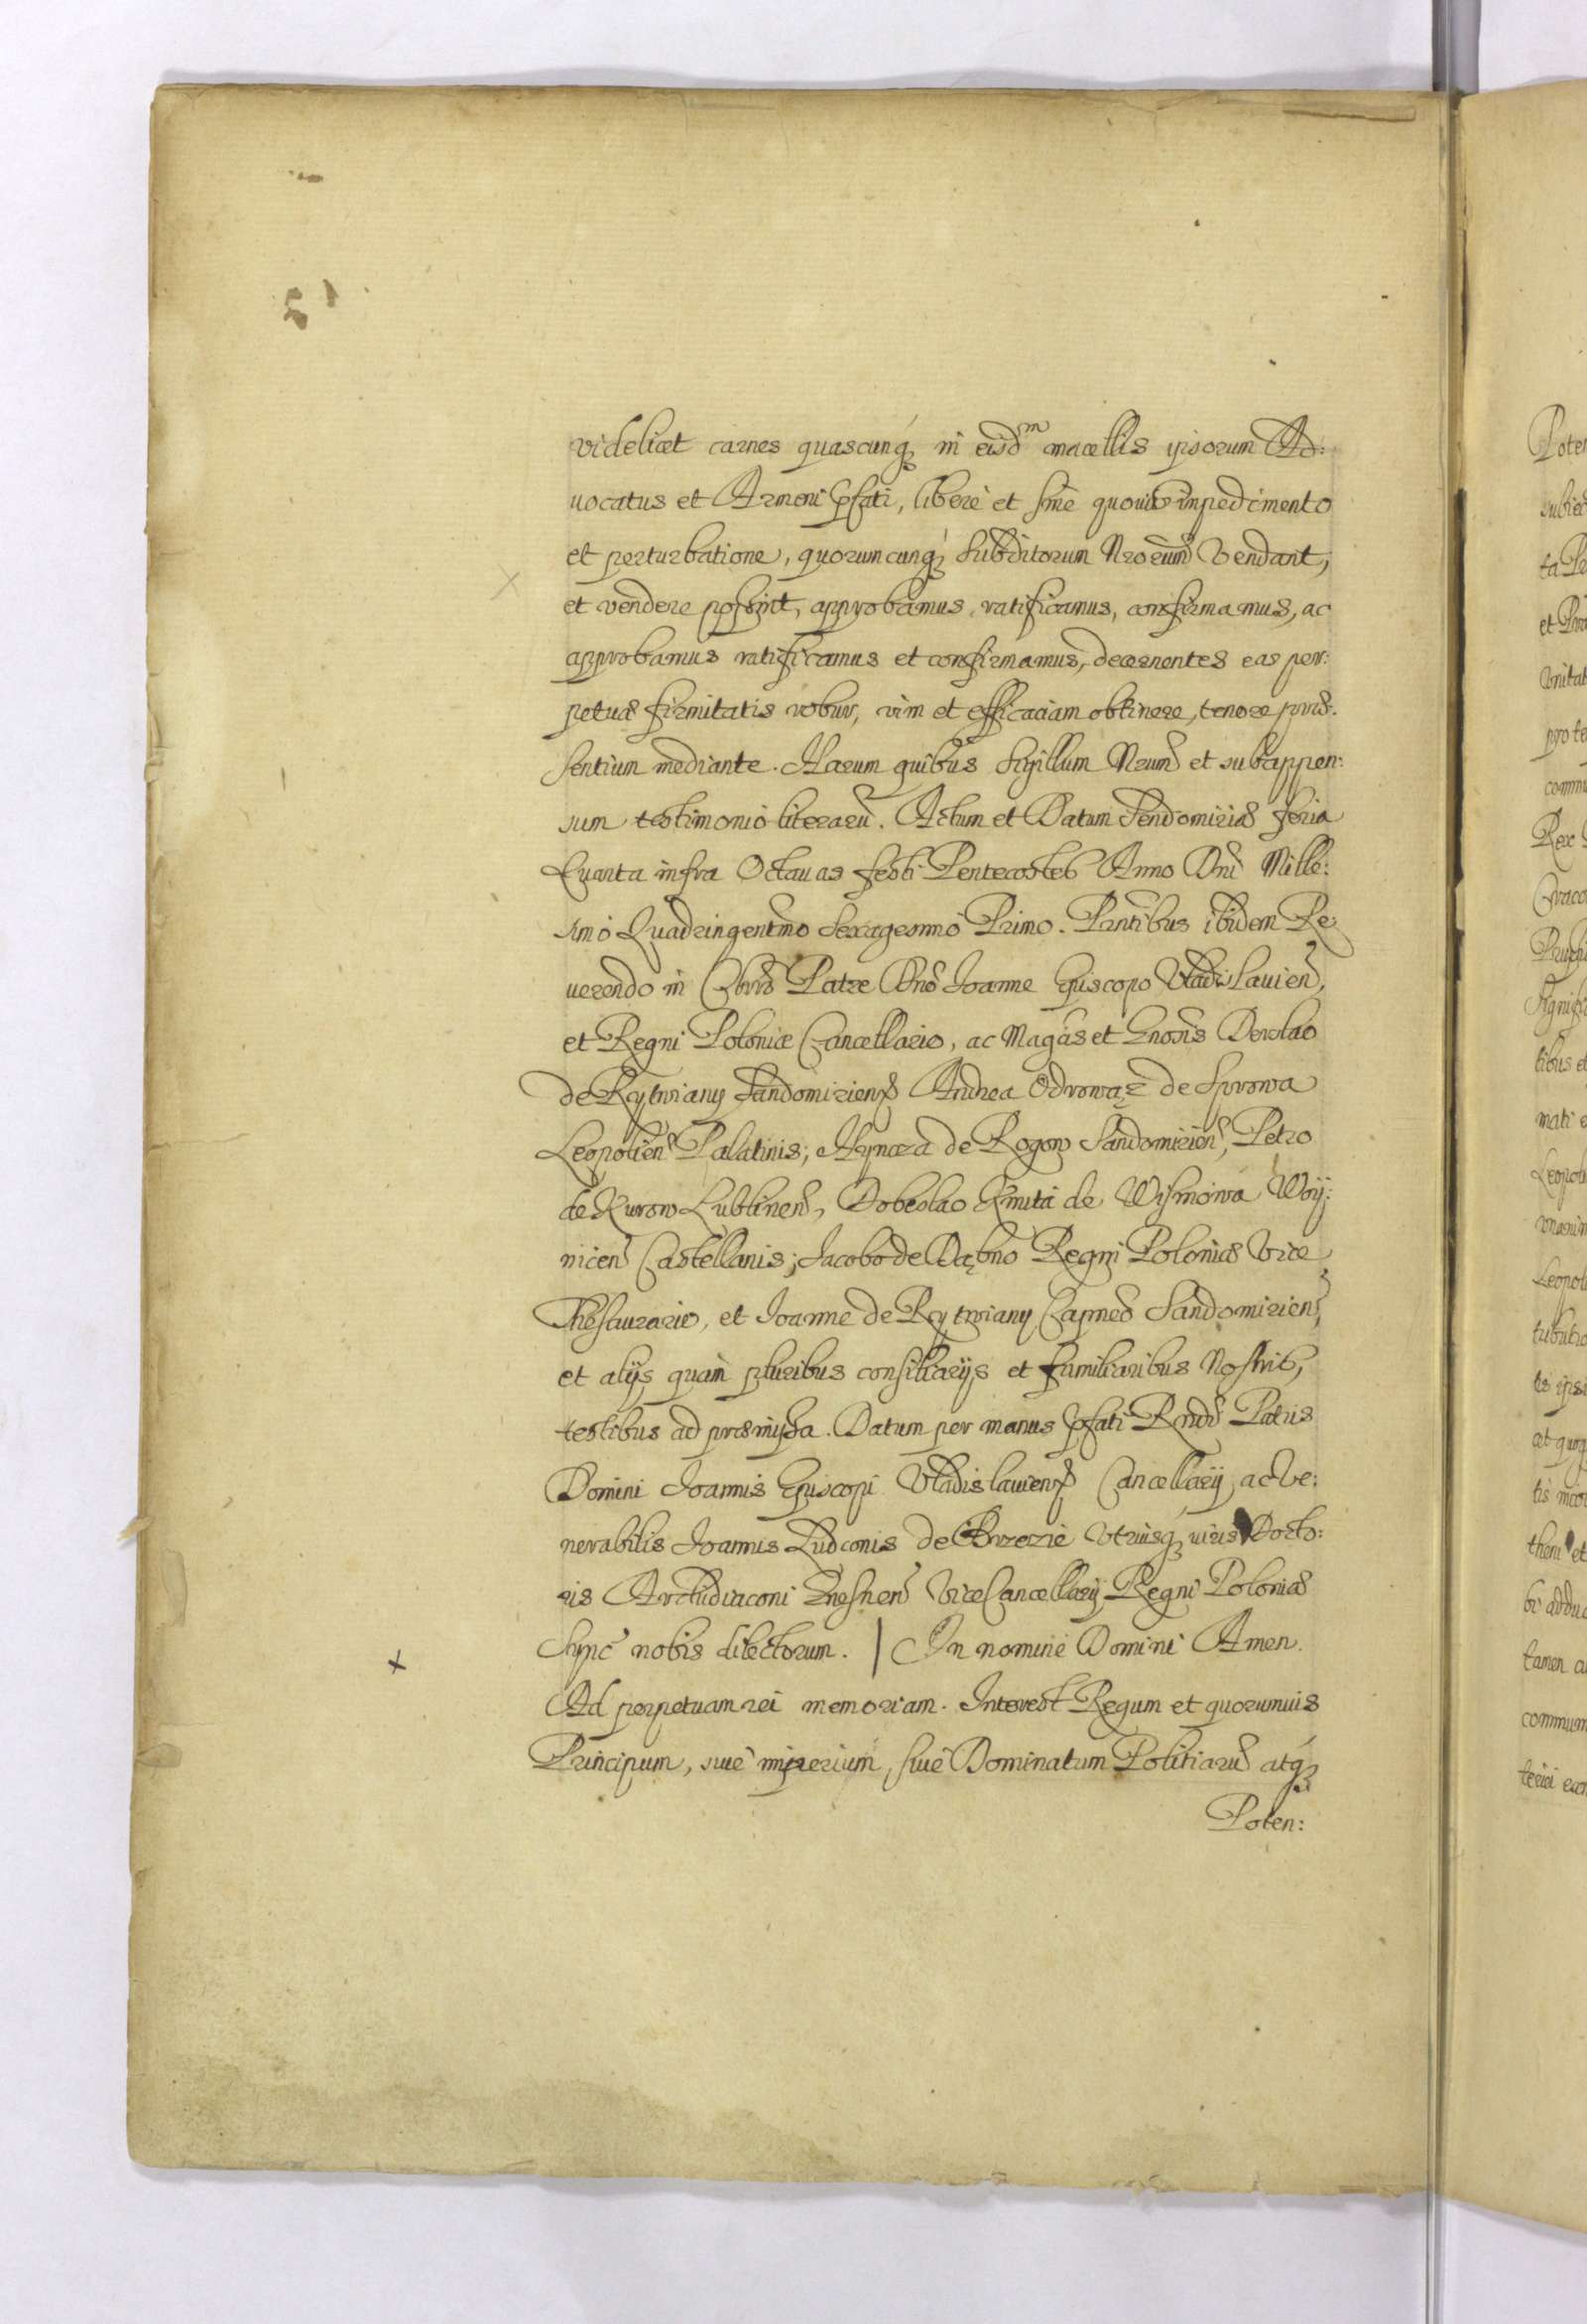 videlicet carnes quascunq in eisdm macellis ipsorum Ad:
uocatus et Armeni pfati, liberè et sinè quouis impedimento
et perturbatione, quoruncunq subditorum Nrorum Vendant,
et vendere possint, approbamus, ratificamus, confirmamus, ac
approbamus ratificamus et confirmamus, decernentes eas per:
petuæ firmitatis robur, vim et efficaciam obtinere, tenore præ:
sentium mediante. Harum quibus Sigillum Nrum et subappen:
sum testimonio literarũ. Actum et Datum Sendomiriæ feria
Quarta infra Octauas festi Pentecostes Anno Dni Mille:
simo Quadringentmo Sexagesimo Primo. Prntibus ibidem Re
uerendo in Chro Patre Dno Joanne Episcopo Vladislauien,
et Regni Poloniæ Cancellario, ac Magcis et Gnosis Derslao
de Rytwiany Sandomirien Andrea Odrowąz de Sprowa
Leopolien Palatinis; Hyncza de Rogow Sandomirien, Petro
de Kurow Lublinen, Dobeslao Kmita de Wisnowa Woij:
nicen Castellanis; Jacobo de Dąbno Regni Poloniæ Vice
Thesaurario, et Joanne de Rytwiany Capneo Sandomirien,
et alijs quam pluribus consiliarijs et familiaribus Nostris,
testibus ad præmissa. Datum per manus pfati Rndi Patris
Domini Joannis Episcopi Vladislauien Cancellarij, ac Ve:
nerabilis Joannis Ludconis de Brzezie Vtriusq iuris Docto:
ris Archidiaconi Gnesnen ViceCancellarij Regni Poloniæ
Sync nobis dilectorum. | In nomine Domini Amen.
Ad perpetuam rei memoriam. Interest Regum et quorumuis
Principum, siuè imperium, siuè Dominatum Politiarũ atq
Poten: